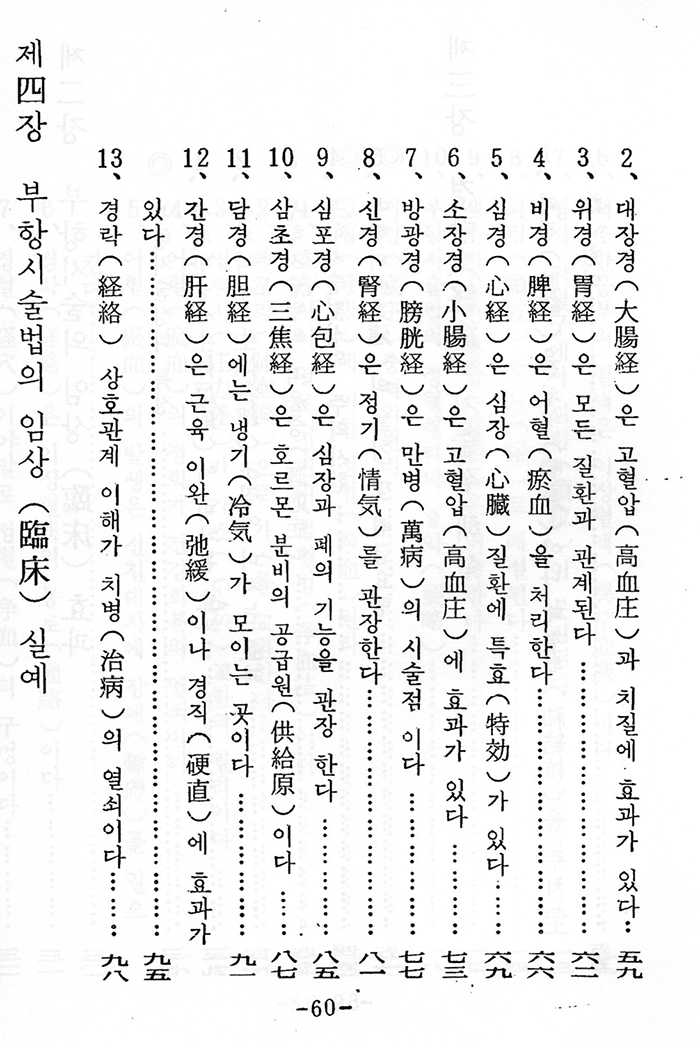 2、대장경(大腸経)은 고혈압(高血圧)과 치질에 효과가 있다…五九
3、위경(胃経)은 모든 질환과 관계된다………………六二
4、비경(脾経)은 어혈(瘀血)을 처리한다………………六六
5、심경(心経)은 심장(心臓)질환에 특효(特効)가 있다………六九
6、소장경(小腸経)은 고혈압(高血圧)에 효과가 있다…………七三
7、방광경(膀胱経)은 만병(萬病)의 시술점 이다……………七七
8、신경(腎経)은 정기(情気)를 관장한다………………八一
9、심포경(心包経)은 심장과 폐의 기능을 관장 한다…………八五
10、삼초경(三焦経)은 호르몬 분비의 공급원(供給原)이다……八七
11、담경(胆経)에는 냉기(冷気)가 모이는 곳이다……………九一
12、간경(肝経)은 근육 이완(弛緩)이나 경직(硬直)에 효과가
있다…………………………………………九五
13、경락(経絡) 상호관계 이해가 치병(治病)의 열쇠이다………九八
제四장 부항시술법의 임상(臨床) 실예
-60-